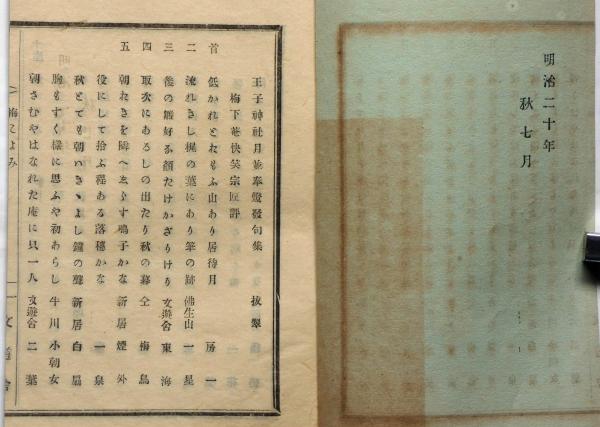 明治二十年
秋七月
王子神社月並奉燈發句集 抜翠
梅下菴快笑宗匠評
首 低かれとおもふ山あり居待月 房一
二 流れきし梶の葉にあり筆の跡 佛生山 一星
三 後の雛好み顔たけかざりけり 文遊舎 東海
四 取次にあるしの出たり秋の暮 仝 梅鳥
五 朝おきを隣へゑらす鳴子かな 新居 煙外
役にして拾ふ程ある落穗かな 一泉
秋とても朝いさゝよし鐘の聲 新居 白扇
胸もすく樣に思ふや初あらし 牛川 小朝女
朝さむやはなれた庵に只一人 文遊舎 二葉
梅こよみ
一 文遊舎